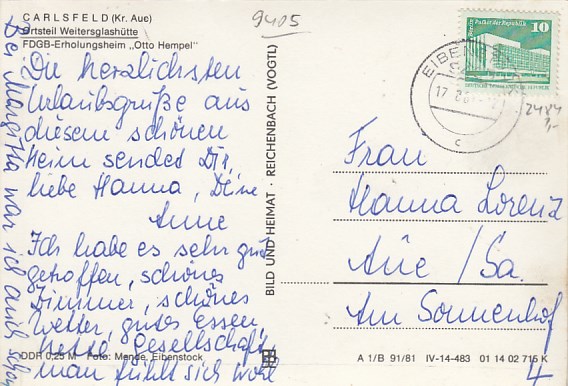 CARLSFELD (Kr. Aue)
Ortsteil Weitersglashütte
FDGB-Erholungsheim „Otto Hempel"
9405
Die herzlichsten
Urlaubsgrüße aus
diesem schönen
Heim sendet Dir,
liebe Hanna, Deine
Anne
Ich habe es sehr gut
getroffen, schönes
Zimmer, schönes
Wetter, gutes Essen,
nette Gesellschaft,
man fühlt sich wohl
Bei Martha war ich auch schon
DDR 0,25 M Foto: Menge, Eibenstock
BILD UND HEIMAT · REICHENBACH (VOGTL)
Palast der Republik
10
DEUTSCHE DEMOKRATISCHE REPUBLIK
EIBENSTOCK
17
c
2484
Frau
Hanna Lorenz
Aue / Sa.
Am Sonnenhof
4
A 1/B 91/81 IV-14-483 01 14 02 715 K